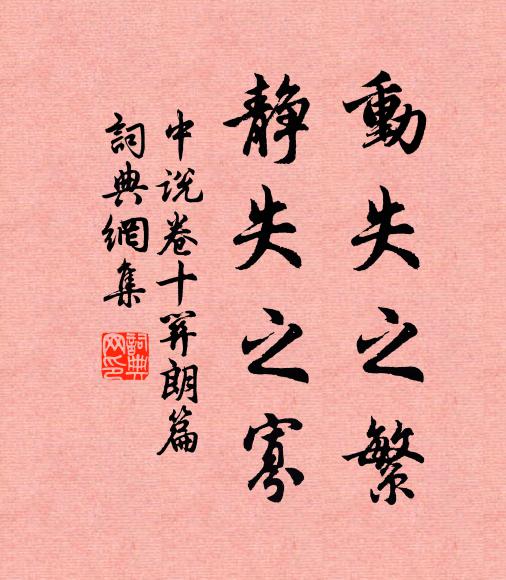 動失之繁
靜失之寡
中說卷十關朗篇
詞典網集
詞典网印